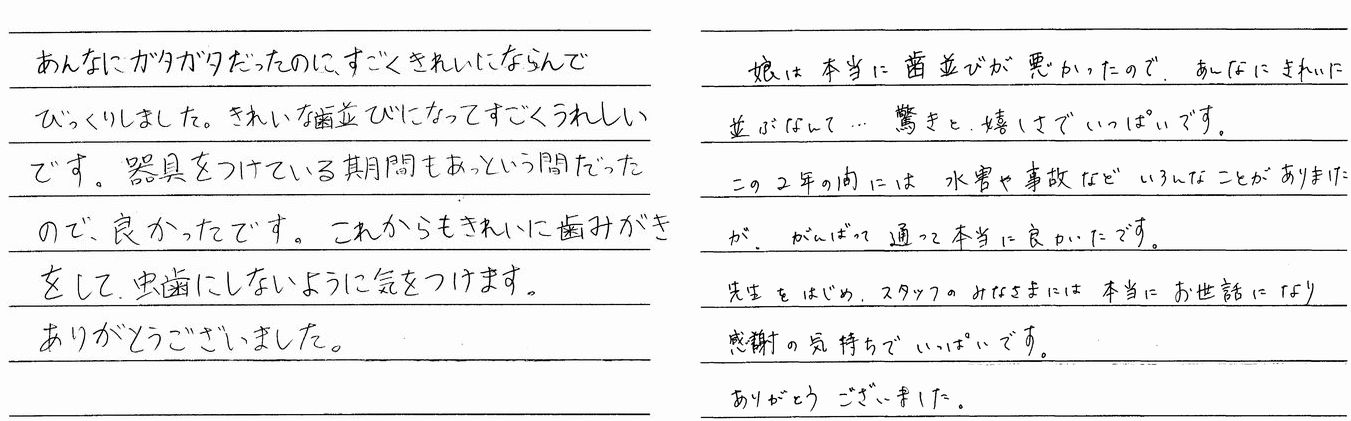 あんなにガタガタだったのに、すごくきれいにならんで
びっくりしました。きれいな歯並びになってすごくうれしい
です。器具をつけている期間もあっという間だった
ので、良かったです。これからもきれいに歯みがき
をして、虫歯にしないように気をつけます。
ありがとうございました。
娘は本当に歯並びが悪かったので、あんなにきれいに
並ぶなんて… 驚きと、嬉しさでいっぱいです。
この2年の間には 水害や事故など いろんなことがありました
が、がんばって通って本当に良かったです。
先生をはじめ、スタッフのみなさまには 本当に お世話になり
感謝の気持ちでいっぱいです。
ありがとう ございました。